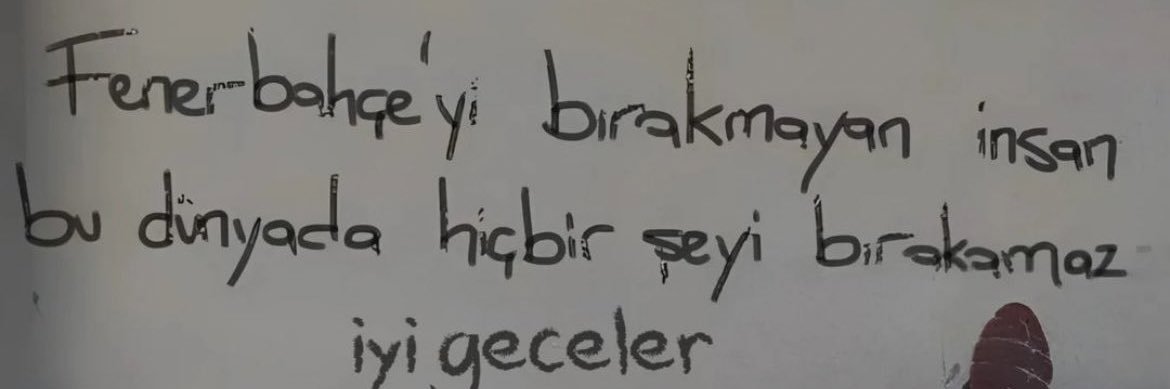 Fenerbahçe'yi bırakmayan insan
bu dünyada hiçbir şeyi bırakamaz
iyi geceler